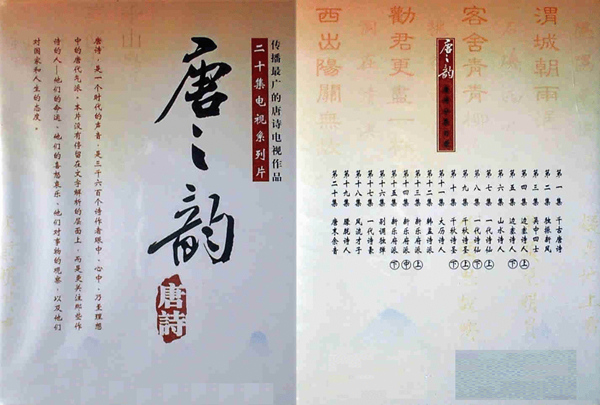 传播最广的唐诗电视作品
二十集电视系列片
唐之韵
唐詩
唐诗，是一个时代的声音，是三千六百个诗作者眼中、心中，乃至理想
中的唐代气派。本片没有停留在文字解料的层面上，而是更关注那些作
诗的人—他们的命运、他们的喜怒哀乐、他们对事物的观察，以及他们
对国家和人生的态度。
渭城朝雨
客舍青青
勸君更盡一杯
西出陽關無故
唐之韵
第一集 千古唐诗
第二集 独振新风
第三集 吴中四士
第四集 边塞诗人 上
第五集 边塞诗人 下
第六集 山水诗人
第七集 一代诗仙 上
第八集 一代诗仙 下
第九集 千秋诗圣 上
第十集 千秋诗圣 下
第十一集 大历诗人
第十二集 韩孟诗派
第十三集 新乐府派 上
第十四集 新乐府派 中
第十五集 新乐府派 下
第十六集 别调独弹
第十七集 一代诗豪
第十八集 风流才子
第十九集 朦胧诗人
第二十集 唐末余音